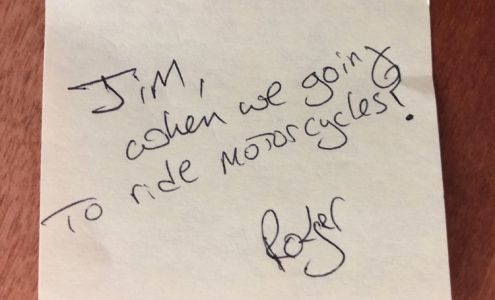 Jim,
when we going
To ride motorcycles?
Rodger